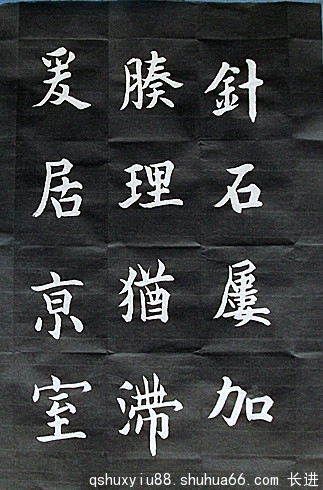 針石屢加
腠理猶滯
爰居京室
qshuxyiu88.shuhua66.com 长进